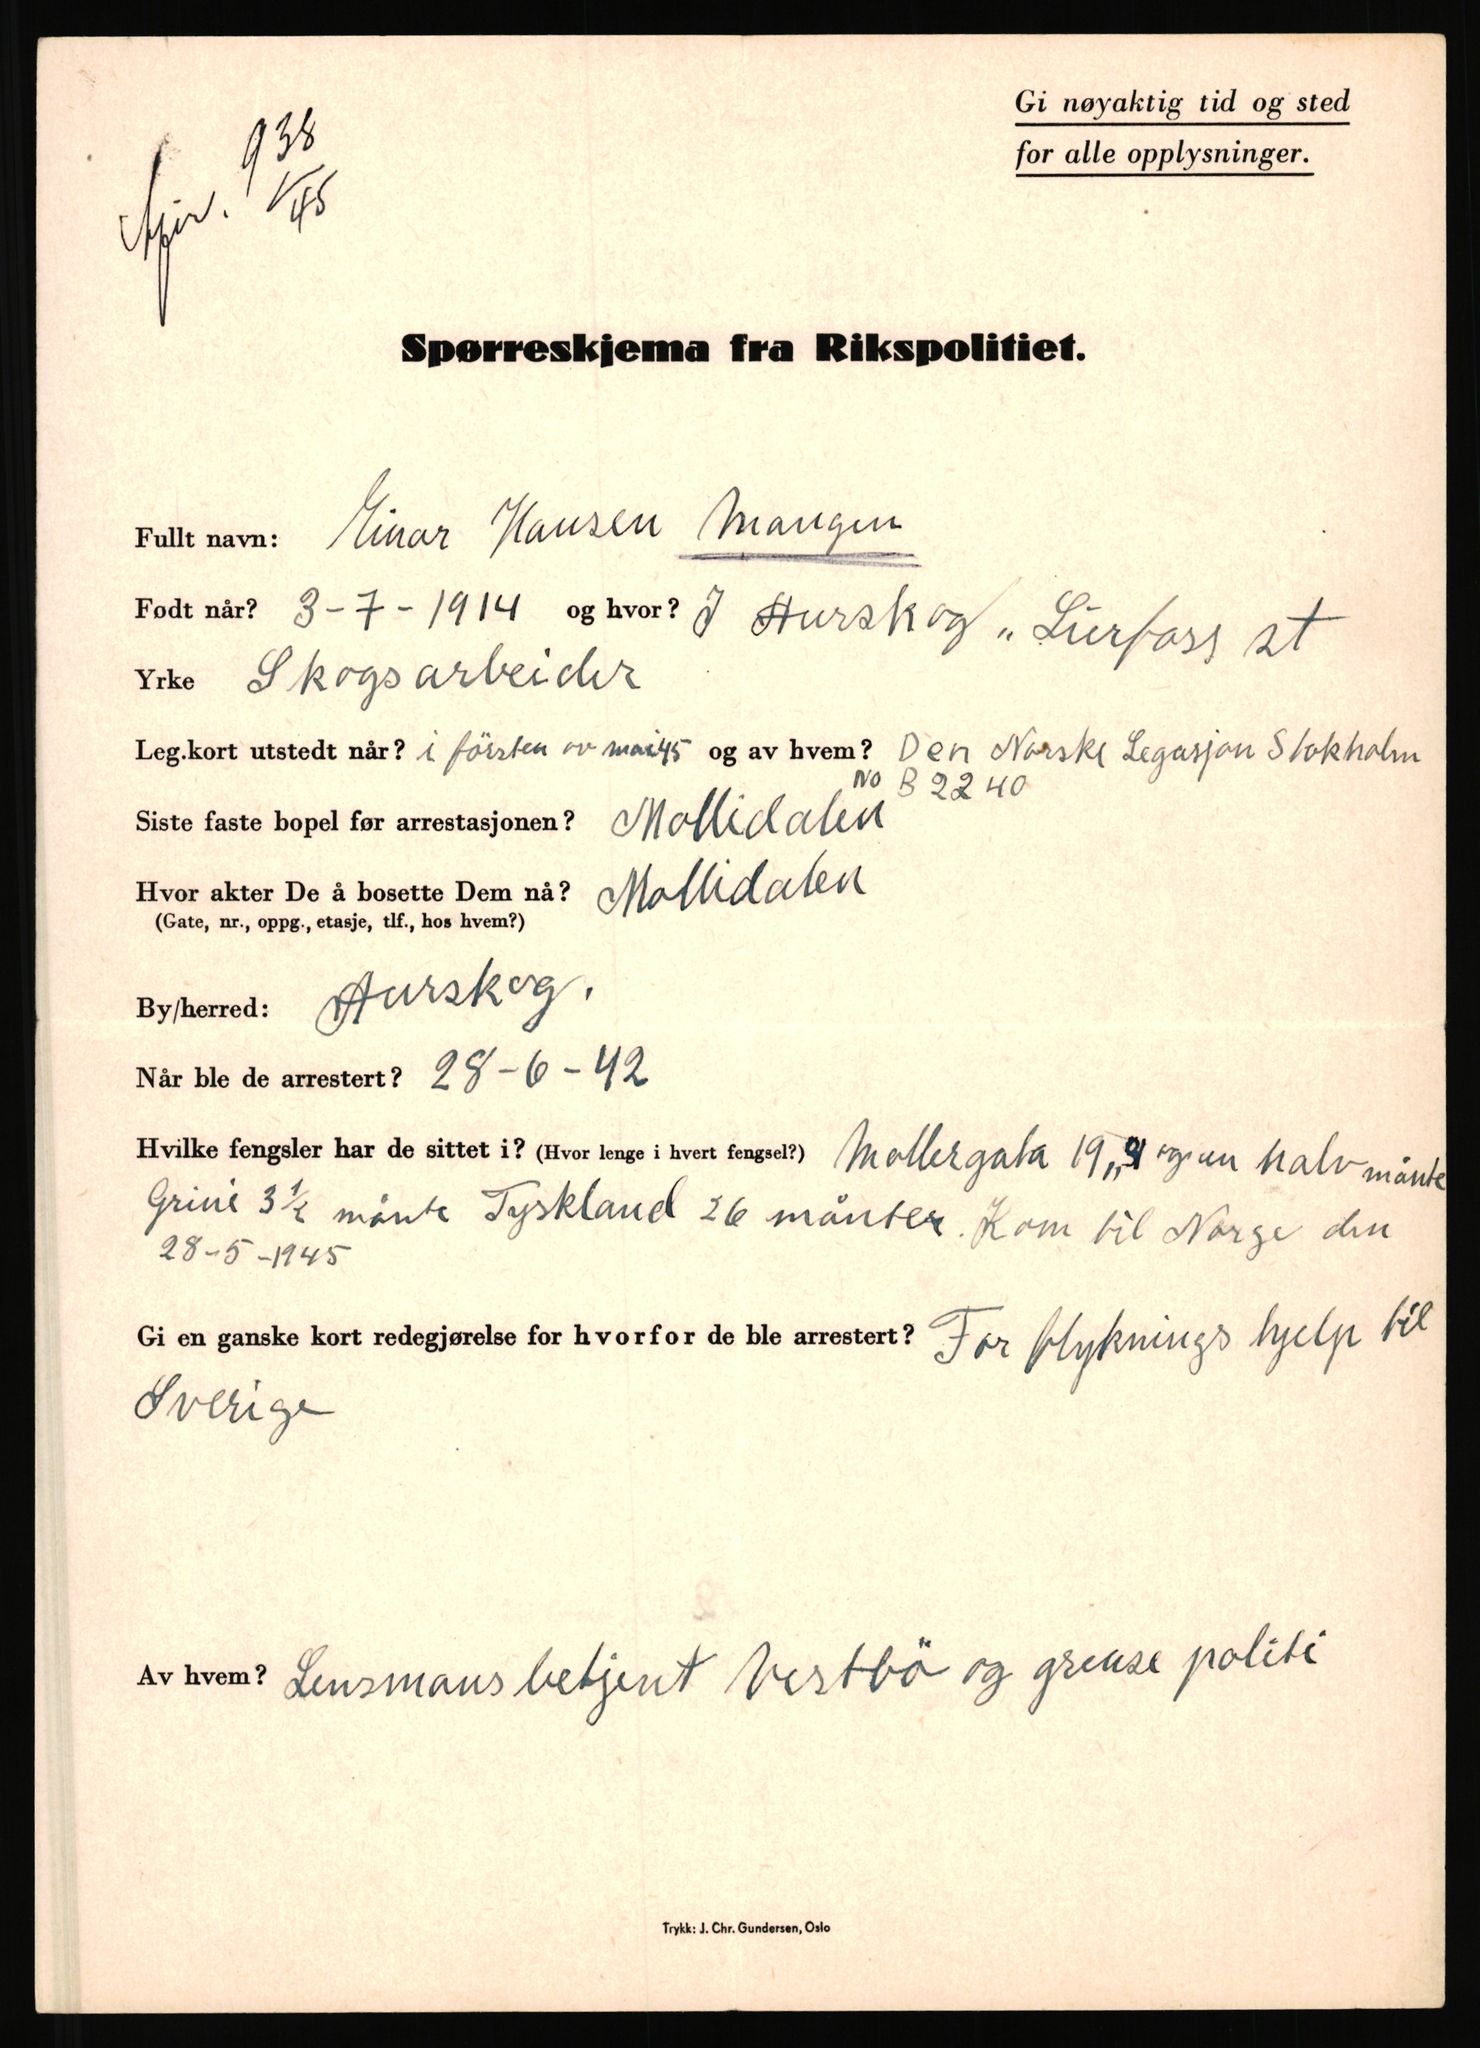 Gi nøyaktig tid og sted
for alle opplysninger.
938
/45
Spørreskjema fra Rikspolitiet.
Fullt navn: Einar Hansen Mangen
Født når? 3-7-1914 og hvor? I Aurskog „ Lierfoss st
Yrke Skogsarbeider
Leg.kort utstedt når? i försten av mai 45 og av hvem? Den Norske Legasjon Stokholm
No B 2240
Siste faste bopel før arrestasjonen? Mollidalen
Hvor akter De å bosette Dem nå? Mollidalen
(Gate, nr., oppg., etasje, tlf., hos hvem?)
By/herred: Aurskog.
Når ble de arrestert? 28-6-42
Hvilke fengsler har de sittet i? (Hvor lenge i hvert fengsel?) Mollergata 19 „ og en halv månte
Grini 3 1/2 månte Tyskland 26 månter. Kom til Norge den
28-5-1945
Gi en ganske kort redegjørelse for hvorfor de ble arrestert? For flyknings hjelp til
Sverige
Av hvem? Lensmansbetjent Vestbö og grense politi
Trykk: J. Chr. Gundersen, Oslo